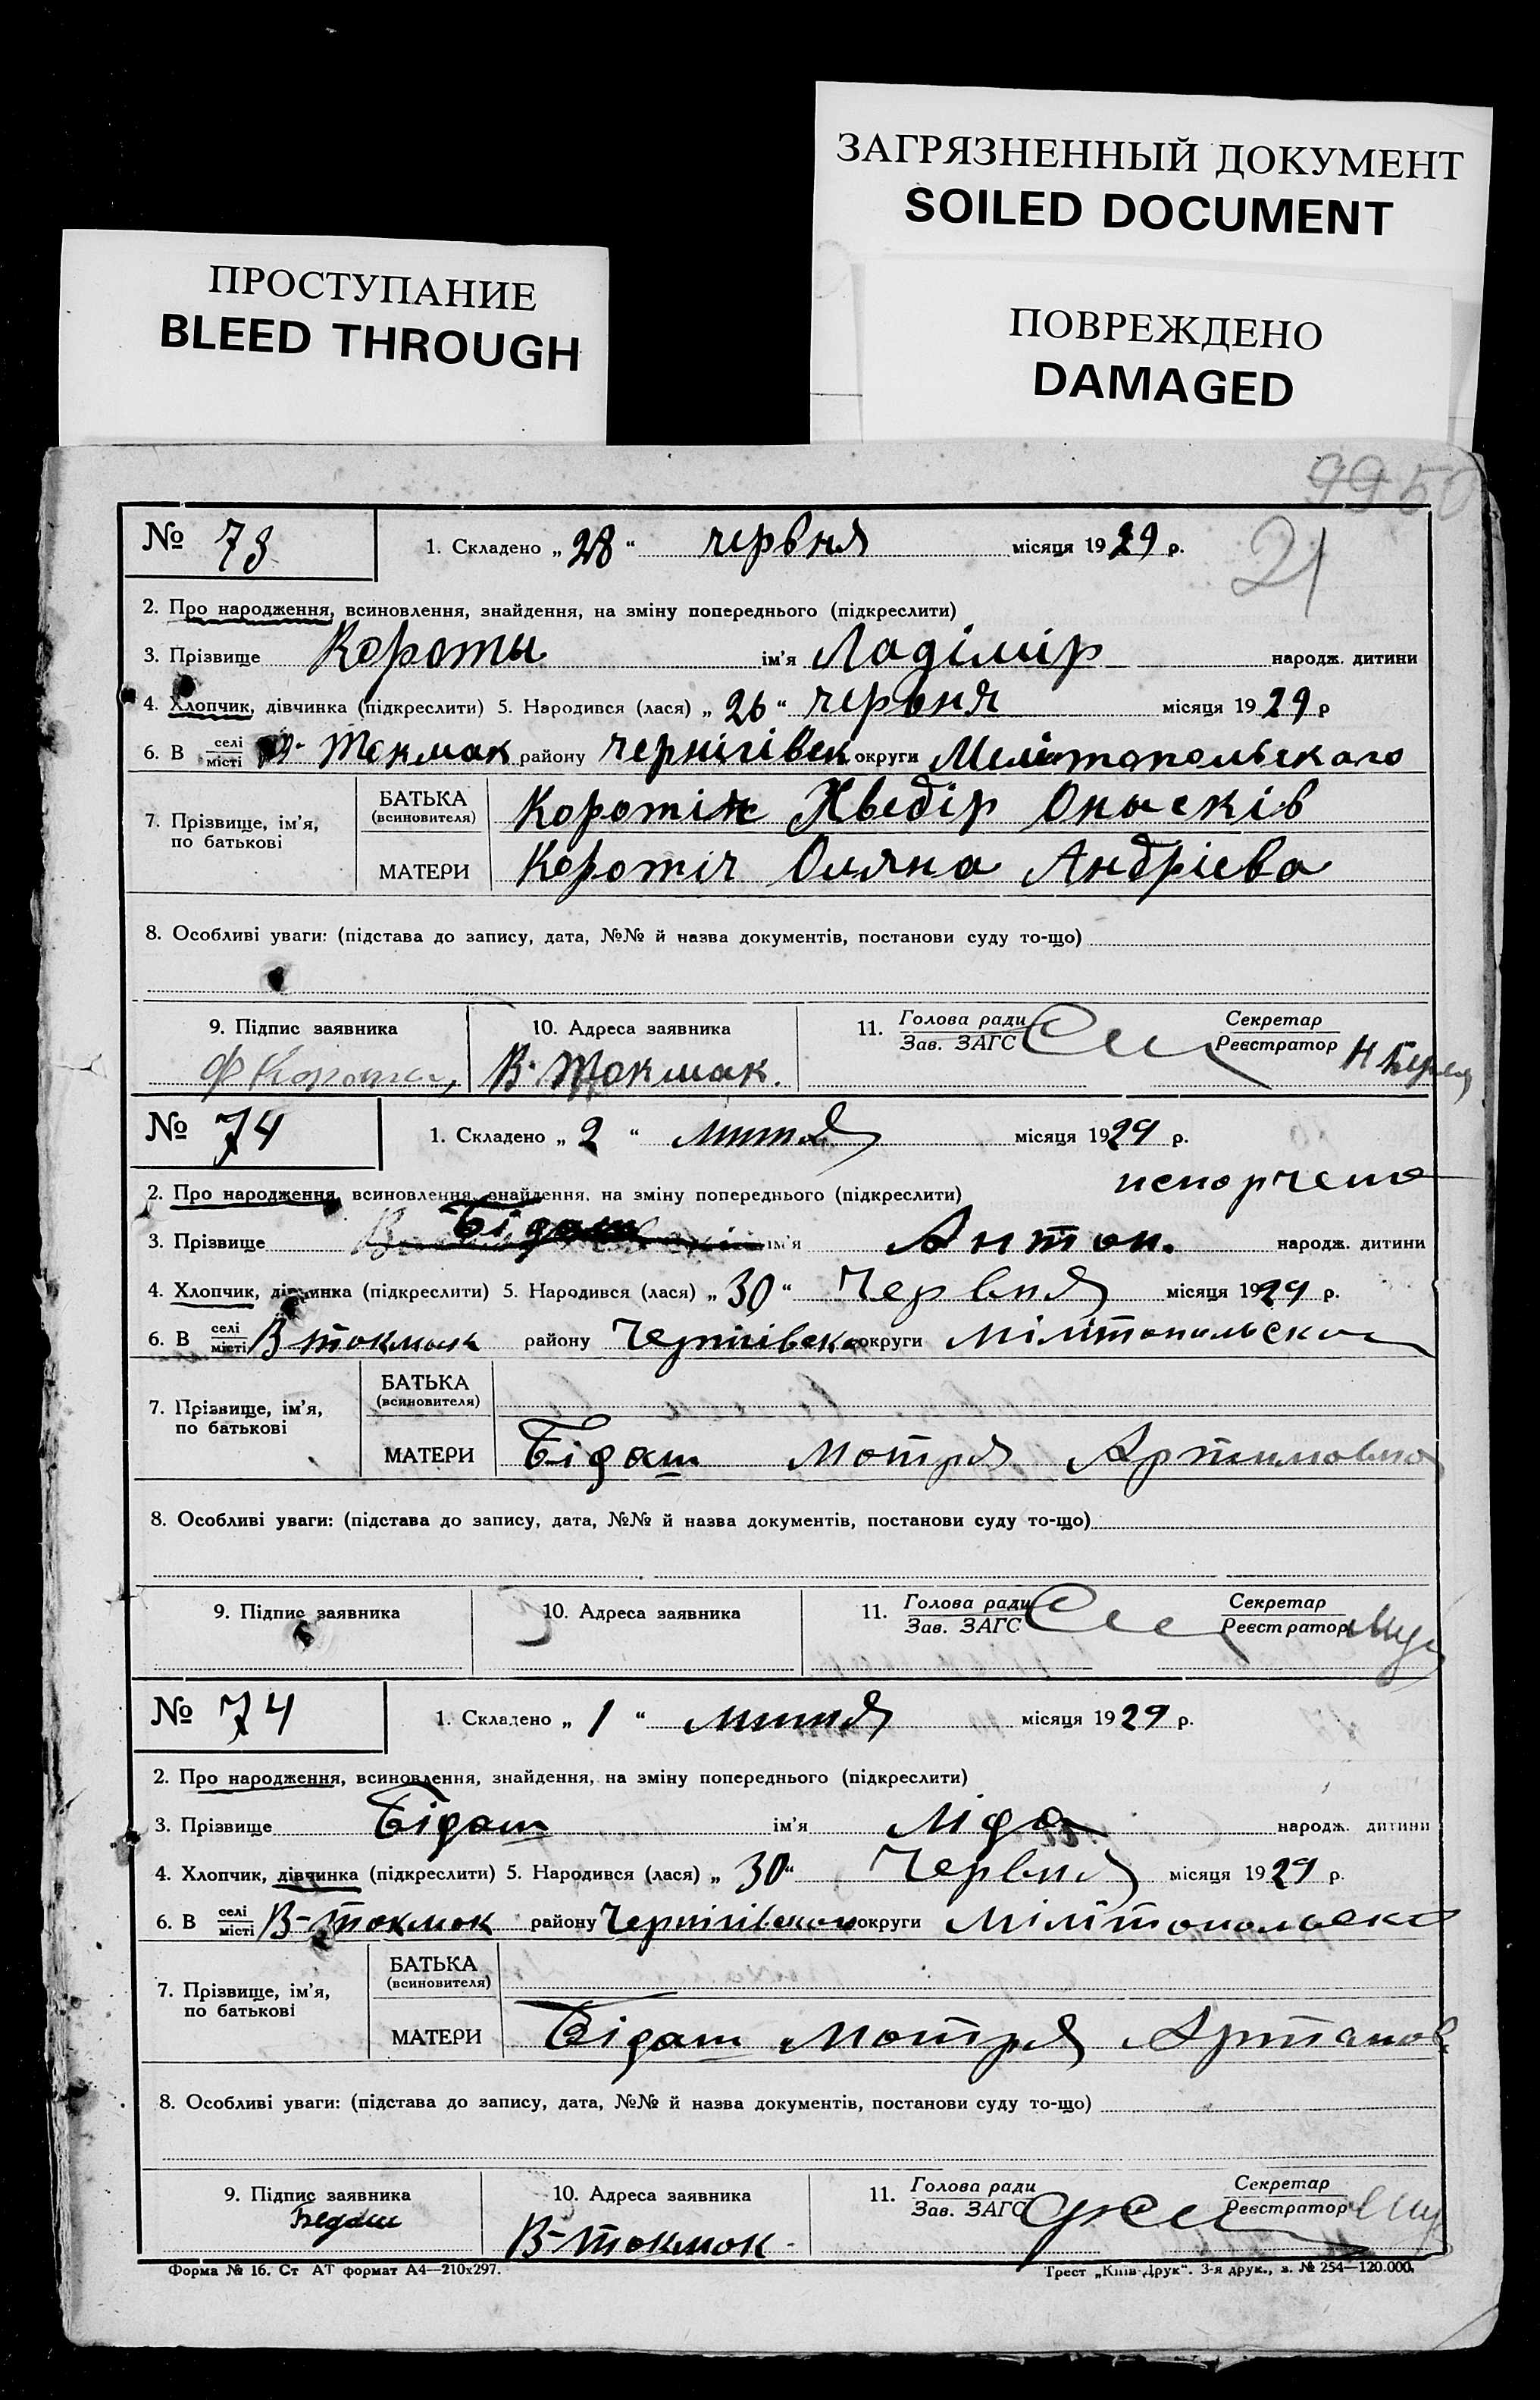 ЗАГРЯЗНЕННЫЙ ДОКУМЕНТ
SOILED DOCUMENT
ПРОСТУПАНИЕ
BLEED THROUGH
ПОВРЕЖДЕНО
DAMAGED
9950
21
№ 73
1. Складено „28“ червня місяця 1929 р.
2. Про народження, всиновлення, знайдення, на зміну попереднього (підкреслити)
3. Прізвище Короты ім'я Ладімір народж. дитини
4. Хлопчик, дівчинка (підкреслити) 5. Народився (лася) „26“ червня місяця 1929 р
6. В селі місті Токмак району Чернігівск округи Мелітопольского
7. Прізвище, ім'я, по батькові
БАТЬКА (всиновителя) Коротіч Хведір Онысків
МАТЕРИ Коротіч Оляна Андрієва
8. Особливі уваги: (підстава до запису, дата, №№ й назва документів, постанови суду то-що)
9. Підпис заявника
10. Адреса заявника
11. Голова ради Зав. ЗАГС
Секретар Реєстратор
В. Токмак.
№ 74
1. Складено „2“ липня місяця 1929 р.
испорчено
2. Про народження, всиновлення, знайдення, на зміну попереднього (підкреслити)
3. Прізвище Бідаш ім'я Антон. народж. дитини
4. Хлопчик, дівчинка (підкреслити) 5. Народився (лася) „30“ Червня місяця 1929 р.
6. В селі місті В-токмак району Чернігівско округи Мілітопольско
7. Прізвище, ім'я, по батькові
БАТЬКА (всиновителя)
МАТЕРИ Бідаш Мотря Артимовна
8. Особливі уваги: (підстава до запису, дата, №№ й назва документів, постанови суду то-що)
9. Підпис заявника
10. Адреса заявника
11. Голова ради Зав. ЗАГС
Секретар Реєстратор
№ 74
1. Складено „1“ липня місяця 1929 р.
2. Про народження, всиновлення, знайдення, на зміну попереднього (підкреслити)
3. Прізвище Бідаш ім'я Ліда народж. дитини
4. Хлопчик, дівчинка (підкреслити) 5. Народився (лася) „30“ Червня місяця 1929 р.
6. В селі місті В-токмок району Чернігівского округи Мілітопольско
7. Прізвище, ім'я, по батькові
БАТЬКА (всиновителя)
МАТЕРИ Бідаш Мотря Артамов
8. Особливі уваги: (підстава до запису, дата, №№ й назва документів, постанови суду то-що)
9. Підпис заявника
10. Адреса заявника
11. Голова ради Зав. ЗАГС
Секретар Реєстратор
Бедаш
В-токмок
Форма № 16. Ст АТ формат А4—210х297.
Трест „Київ-Друк“. 3-я друк., з. № 254—120.000.